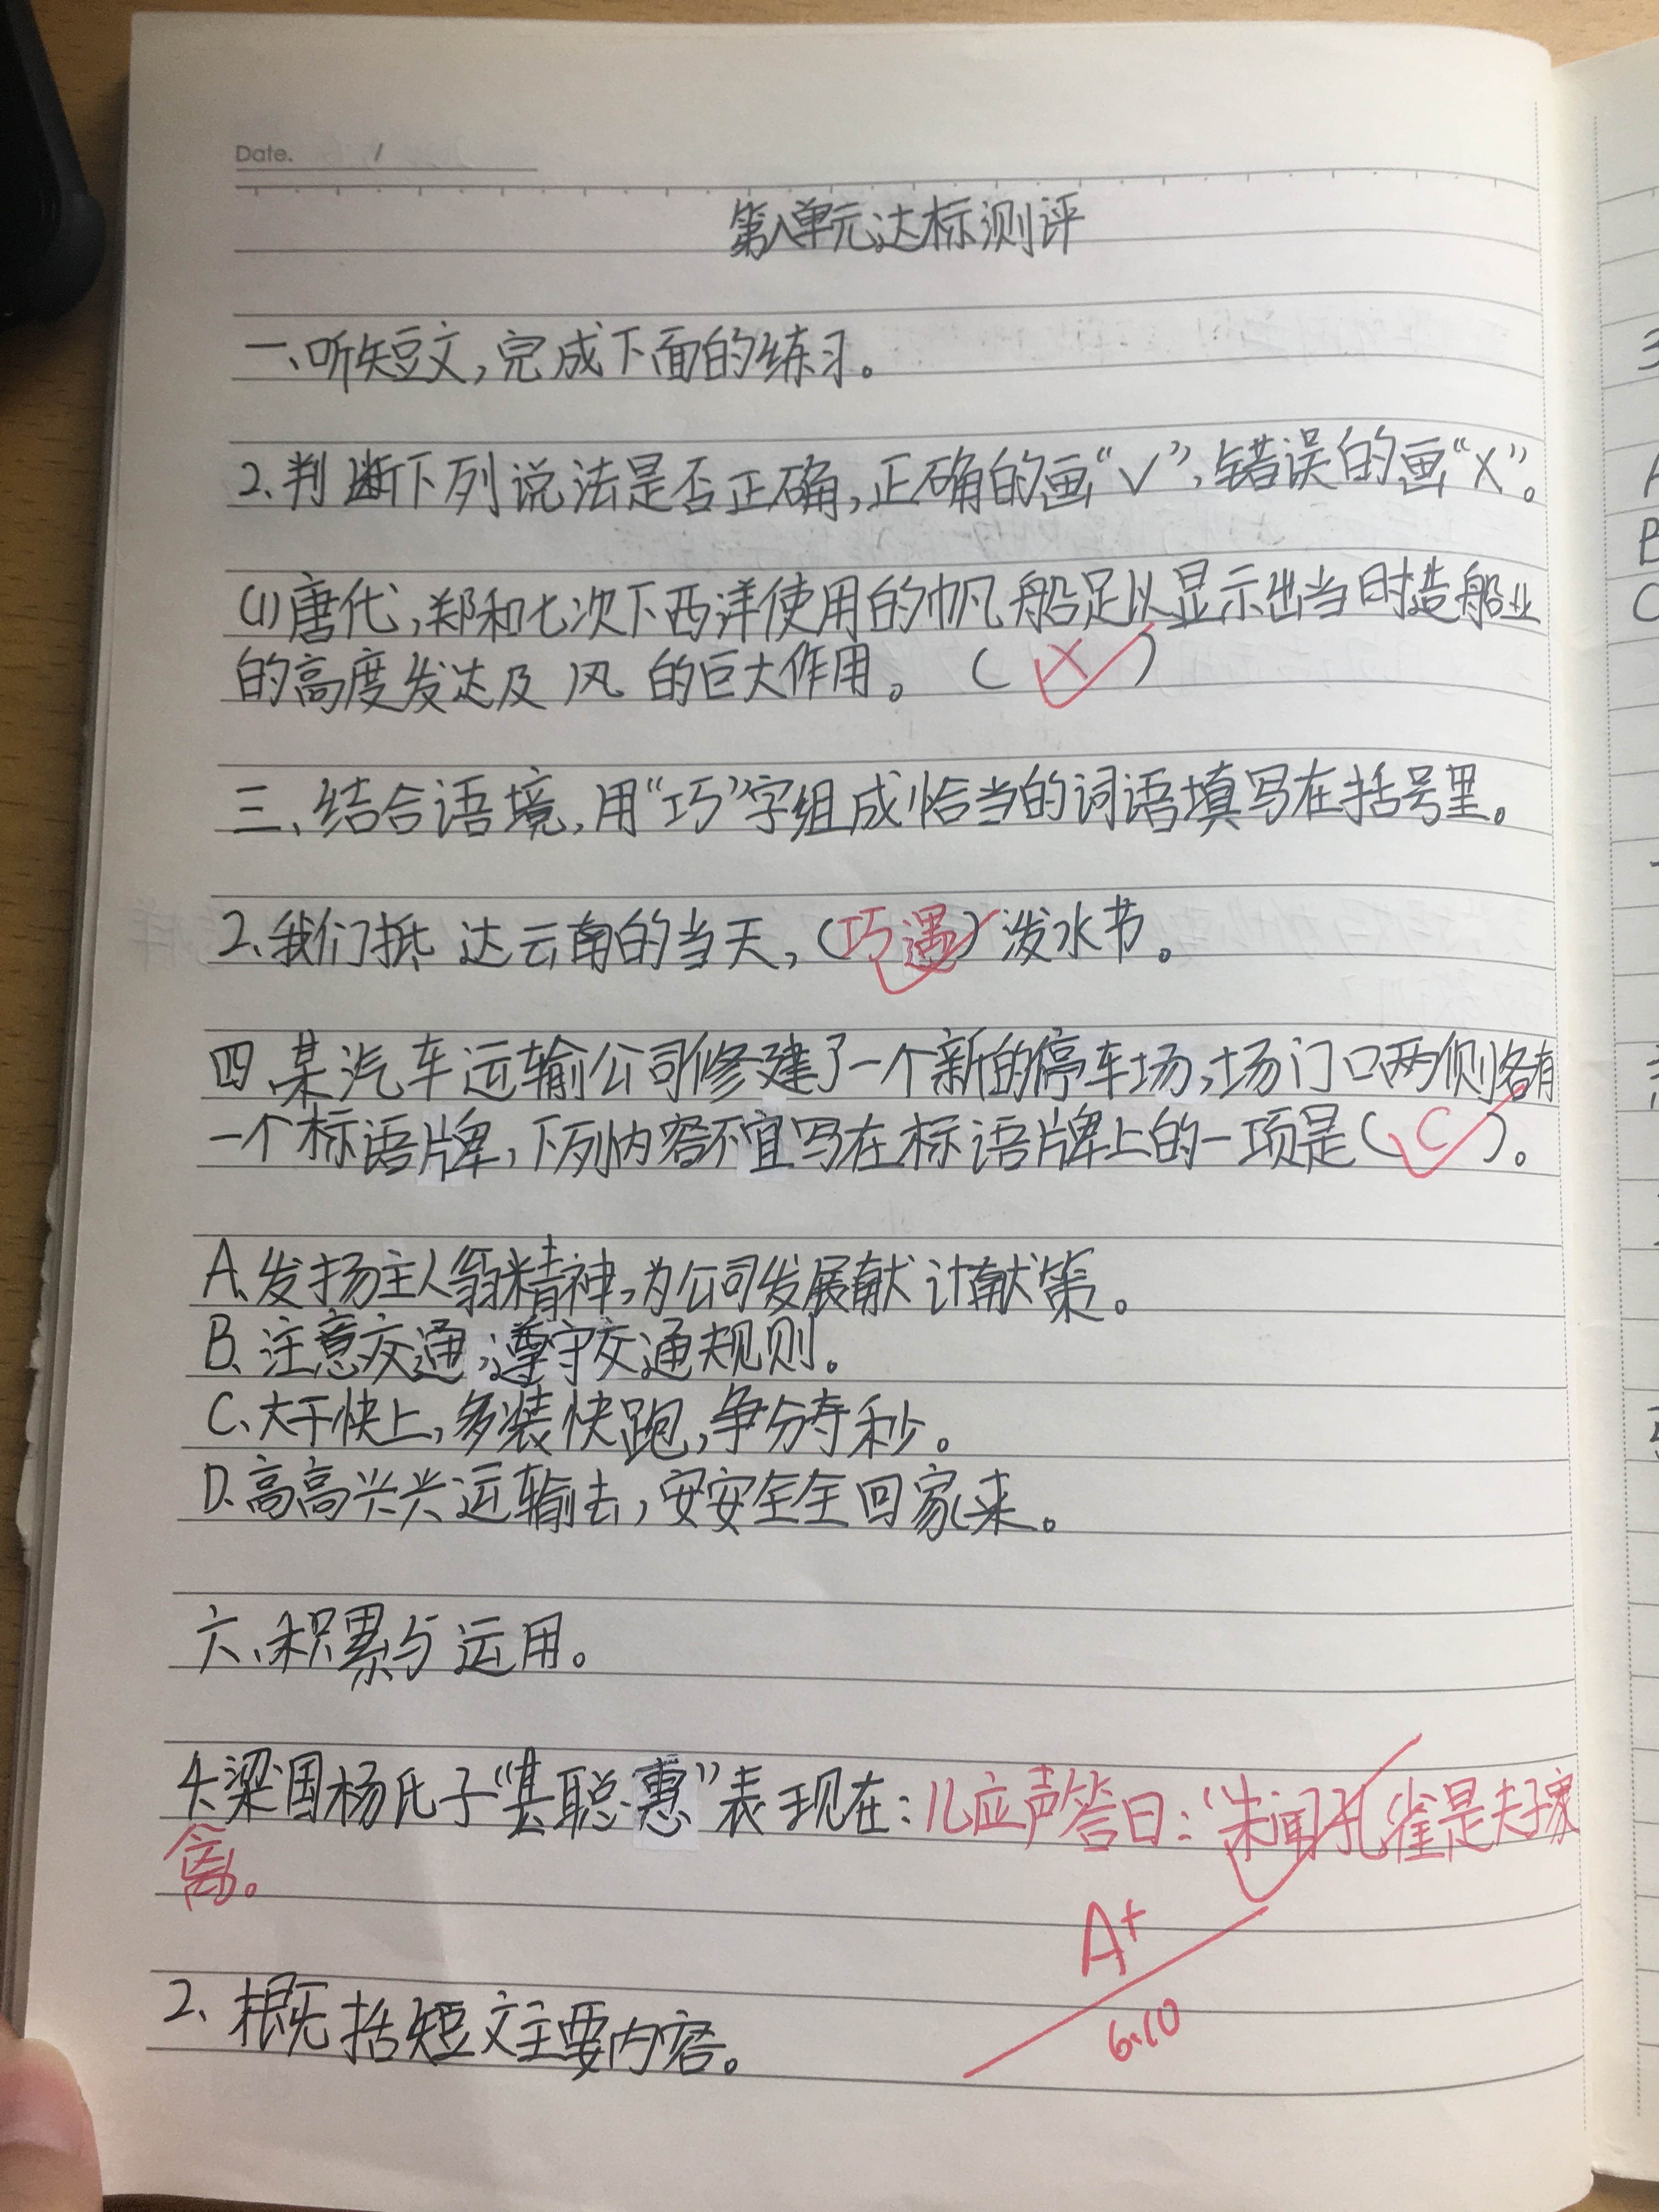 Date. /
第八单元达标测评
一、听短文,完成下面的练习。
2.判断下列说法是否正确,正确的画“√”,错误的画“X”。
(1)唐代,郑和七次下西洋使用的帆船足以显示出当时造船业
的高度发达及风的巨大作用。 ( X )
三、结合语境,用“巧”字组成恰当的词语填写在括号里。
2、我们抵达云南的当天,(巧遇)泼水节。
四、某汽车运输公司修建了一个新的停车场,场门口两侧各有
一个标语牌,下列内容不宜写在标语牌上的一项是( C )。
A、发扬主人翁精神,为公司发展献计献策。
B、注意交通,遵守交通规则。
C、大干快上,多装快跑,争分夺秒。
D、高高兴兴运输去,安安全全回家来。
六、积累与运用。
4.梁国杨氏子“甚聪惠”表现在:儿应声答曰:“未闻孔雀是夫子家
禽。
A+
6.10
2、概括短文主要内容。
3
A
B
C